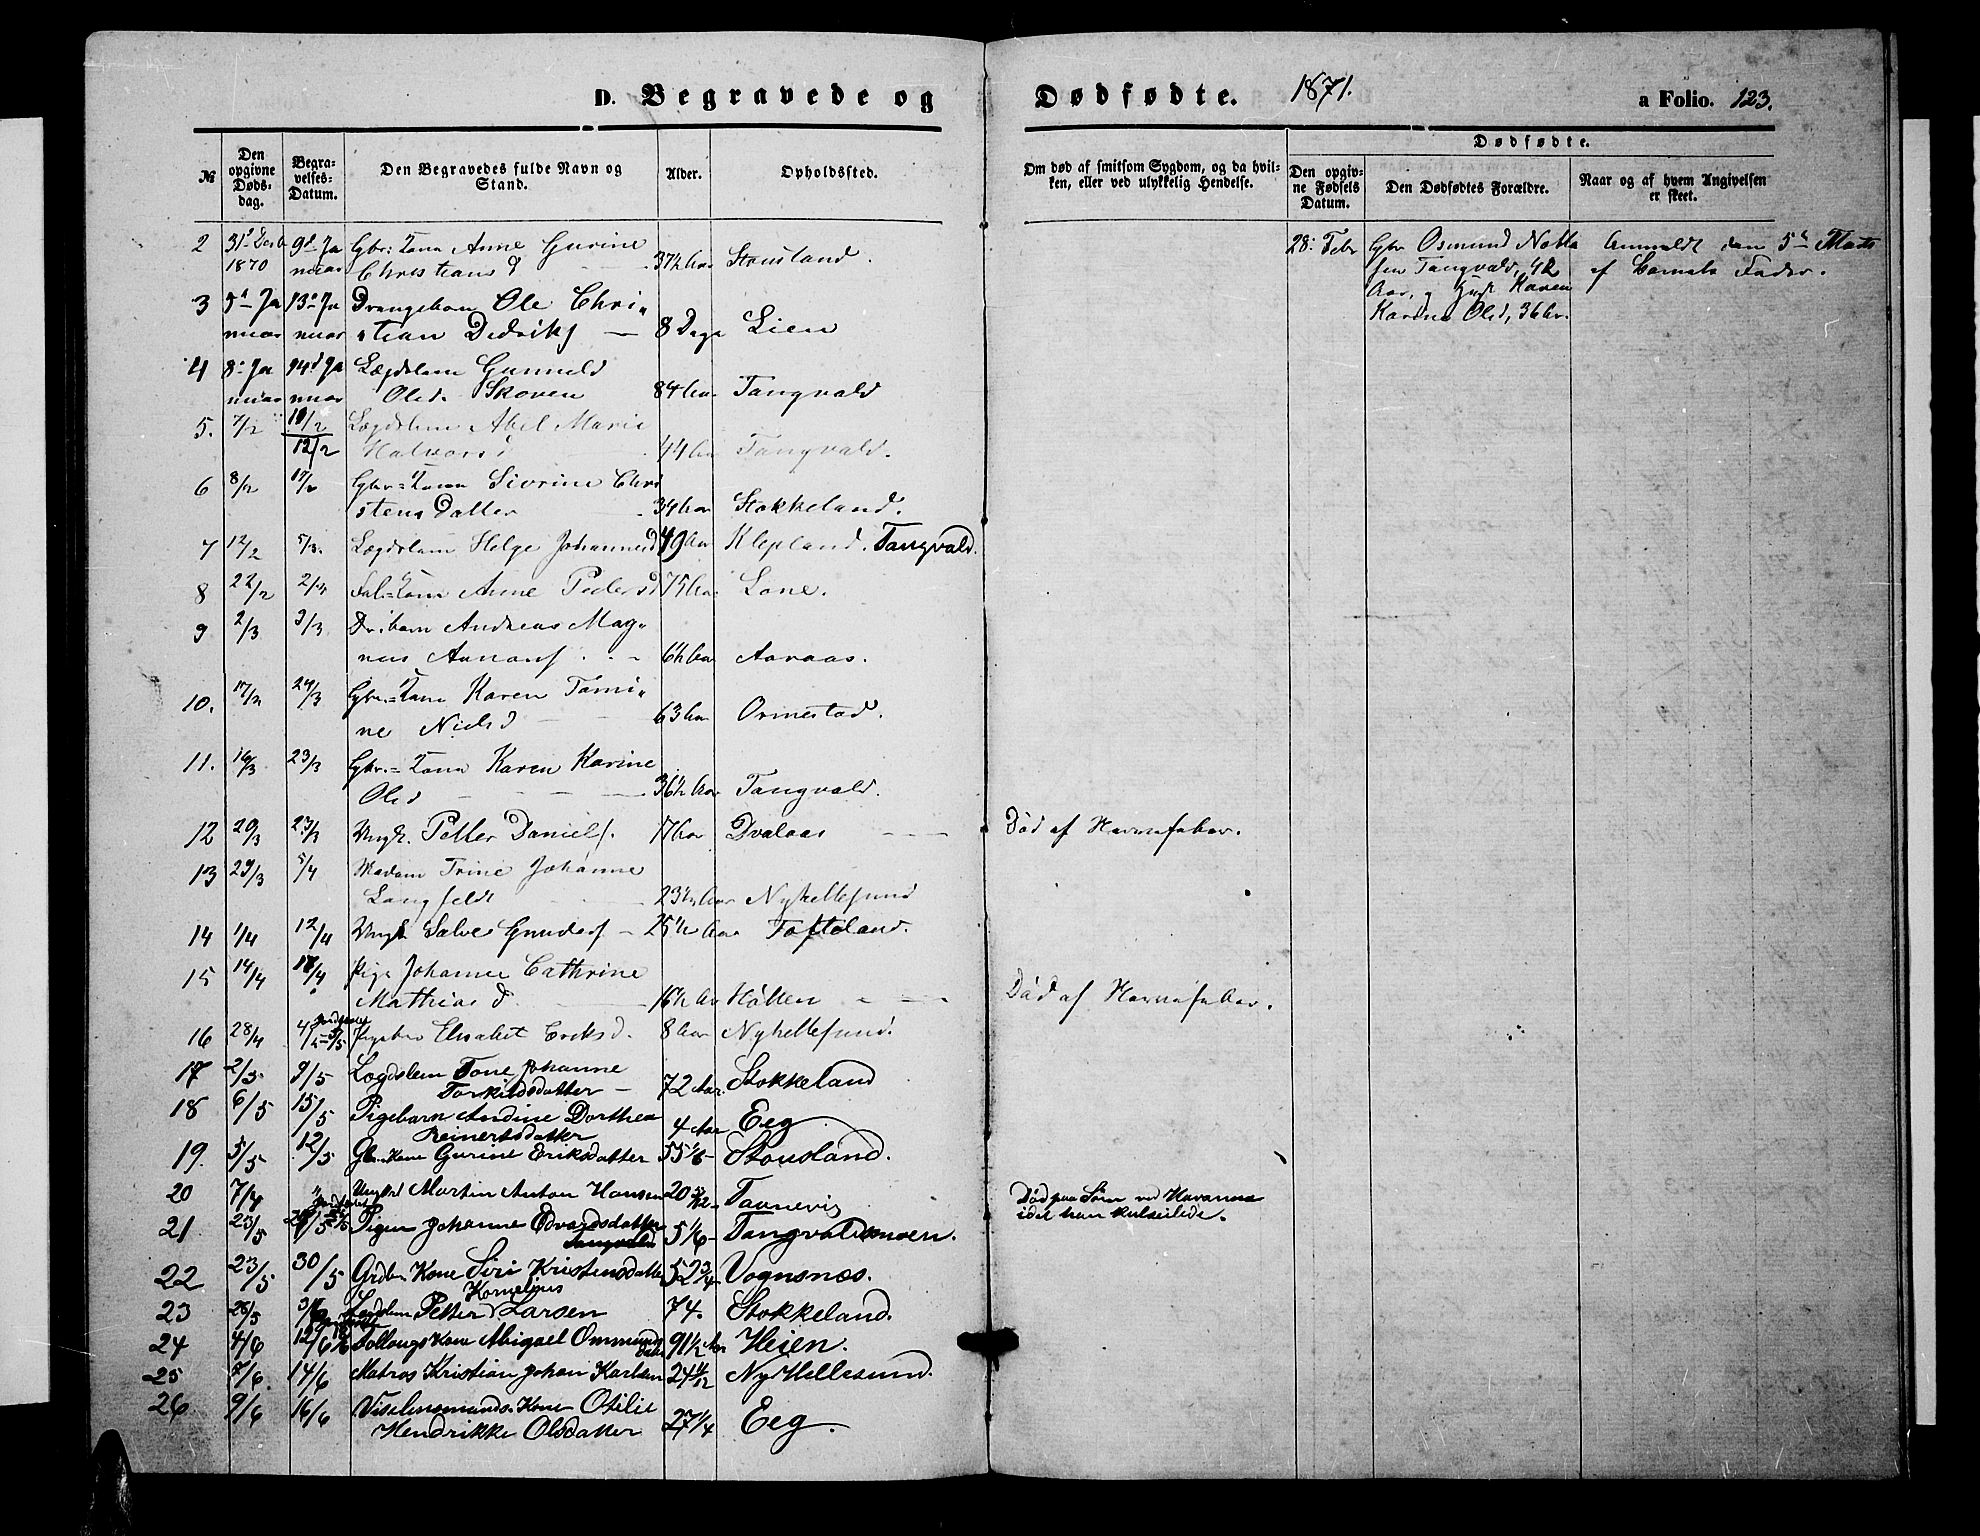 D. Begravede og Dødfødte. 1871. a Folio. 123.
№
Den opgivne Døds-dag.
Begra-velses-Datum.
Den Begravedes fulde Navn og Stand.
Alder.
Opholdssted.
Om død af smitsom Sygdom, og da hvil-ken, eller ved ulykkelig Hendelse.
Dødfødte.
Den opgiv-ne Fødsels Datum.
Den Dødfødtes Forældre.
Naar og af hvem Angivelsen er skeet.
2 31 1870 9d Ja Gbr: Kone Anne Gurine
nuar Christians d 37½ Aar Stousland.
28: Febr Gbr Osmund
sen Tangvald, 42
Aar, og Karen
Karine Olsd, 36 Ar.
Anmeldt den 5t Marts
af Barnets Fader.
3 5t Ja 13d Ja Drengebarn Ole Chri-
nuar nuar stian Didriks 8 Dage Lien
4 8d Ja 14d Ja Lægdslem Gunnild
nuar nuar Olsd. Skoven 84 Aar Tangvald
5. 7/2 10/2 Lægdslem Abel Marie
12/2 Halvorsd 44 Aar Tangvald.
6 8/2 17/2 Gbr. Kone Sivrine Chri
stens Datter 34 Aar Stokkeland.
7 12/2 5/3. Lægdslem Helge Johannesd 49 Aar Klepland. Tangvald.
8 22/2 2/3 Kone Anne Pedersd 75 Aar Lone.
9 2/3 3/3 Dr: barn Andreas Mag-
nus 6½ Aar Aaraas.
10. 17/3 24/3 Gbr. Kone Karen Tomi-
ne Nielsd 63 Aar Ormestad.
11. 16/3 23/3 Gbr. Kone Karen Karine
Olsd 36½ Aar Tangvald.
12 20/3 23/3 Ungk. Petter Daniels. 17 Aar Dvalaas Død af Nervefeber.
13 29/3 5/4 Madam Trine Johanne
Langfeldt 23½ Aar Ny Hellesund
14 1/4 12/4 Ungk Salve 25½ Aar Tofteland.
15 14/4 18/4 Pige Johanne Cathrine
Mathias d 16½ Ar Høllen Død af Nervefeber.
16 28/4 4/5 Pigebn Elisabet Eriksd. 8 Aar Ny Hellesund.
17 2/5 9/5 Lægdslem Tone Johanne
Torkildsdatter 72 Aar. Stokkeland
18 6/5 15/5 Pigebarn Andine Dorthea
Reinertsdatter 4 Aar Eeg
19. 5/5 12/5 Gb. Kone Gurine Eriksdatter 55 1/6 Stousland.
20 7/4 " Ungkrl Martin Anton Hansen 20 Taanevig Død paa Søen ved Havanna
idet han kulseilede.
21 23/5 Pigen Johanne Edvardsdatter 5 1/6 Tangvaldmoen.
Tangvald
22 23/5 30/5 Grdbr. Kone Siri Kristensdatter 52 3/4 Vognsnæs.
Kornelius
23 26/5 Petter Larsen 74. Stokkeland.
24 4/6 12/6 Kone Abigael Ommunds
datter 91 1/2 Aar Heien.
25 7/6 14/6 Matros Kristian Johan Karlsen 24 11/12 Ny Hellesund.
26 9/6 16/6 Kone Otilie
Hendrikke Olsdatter 27 1/4 Eeg.